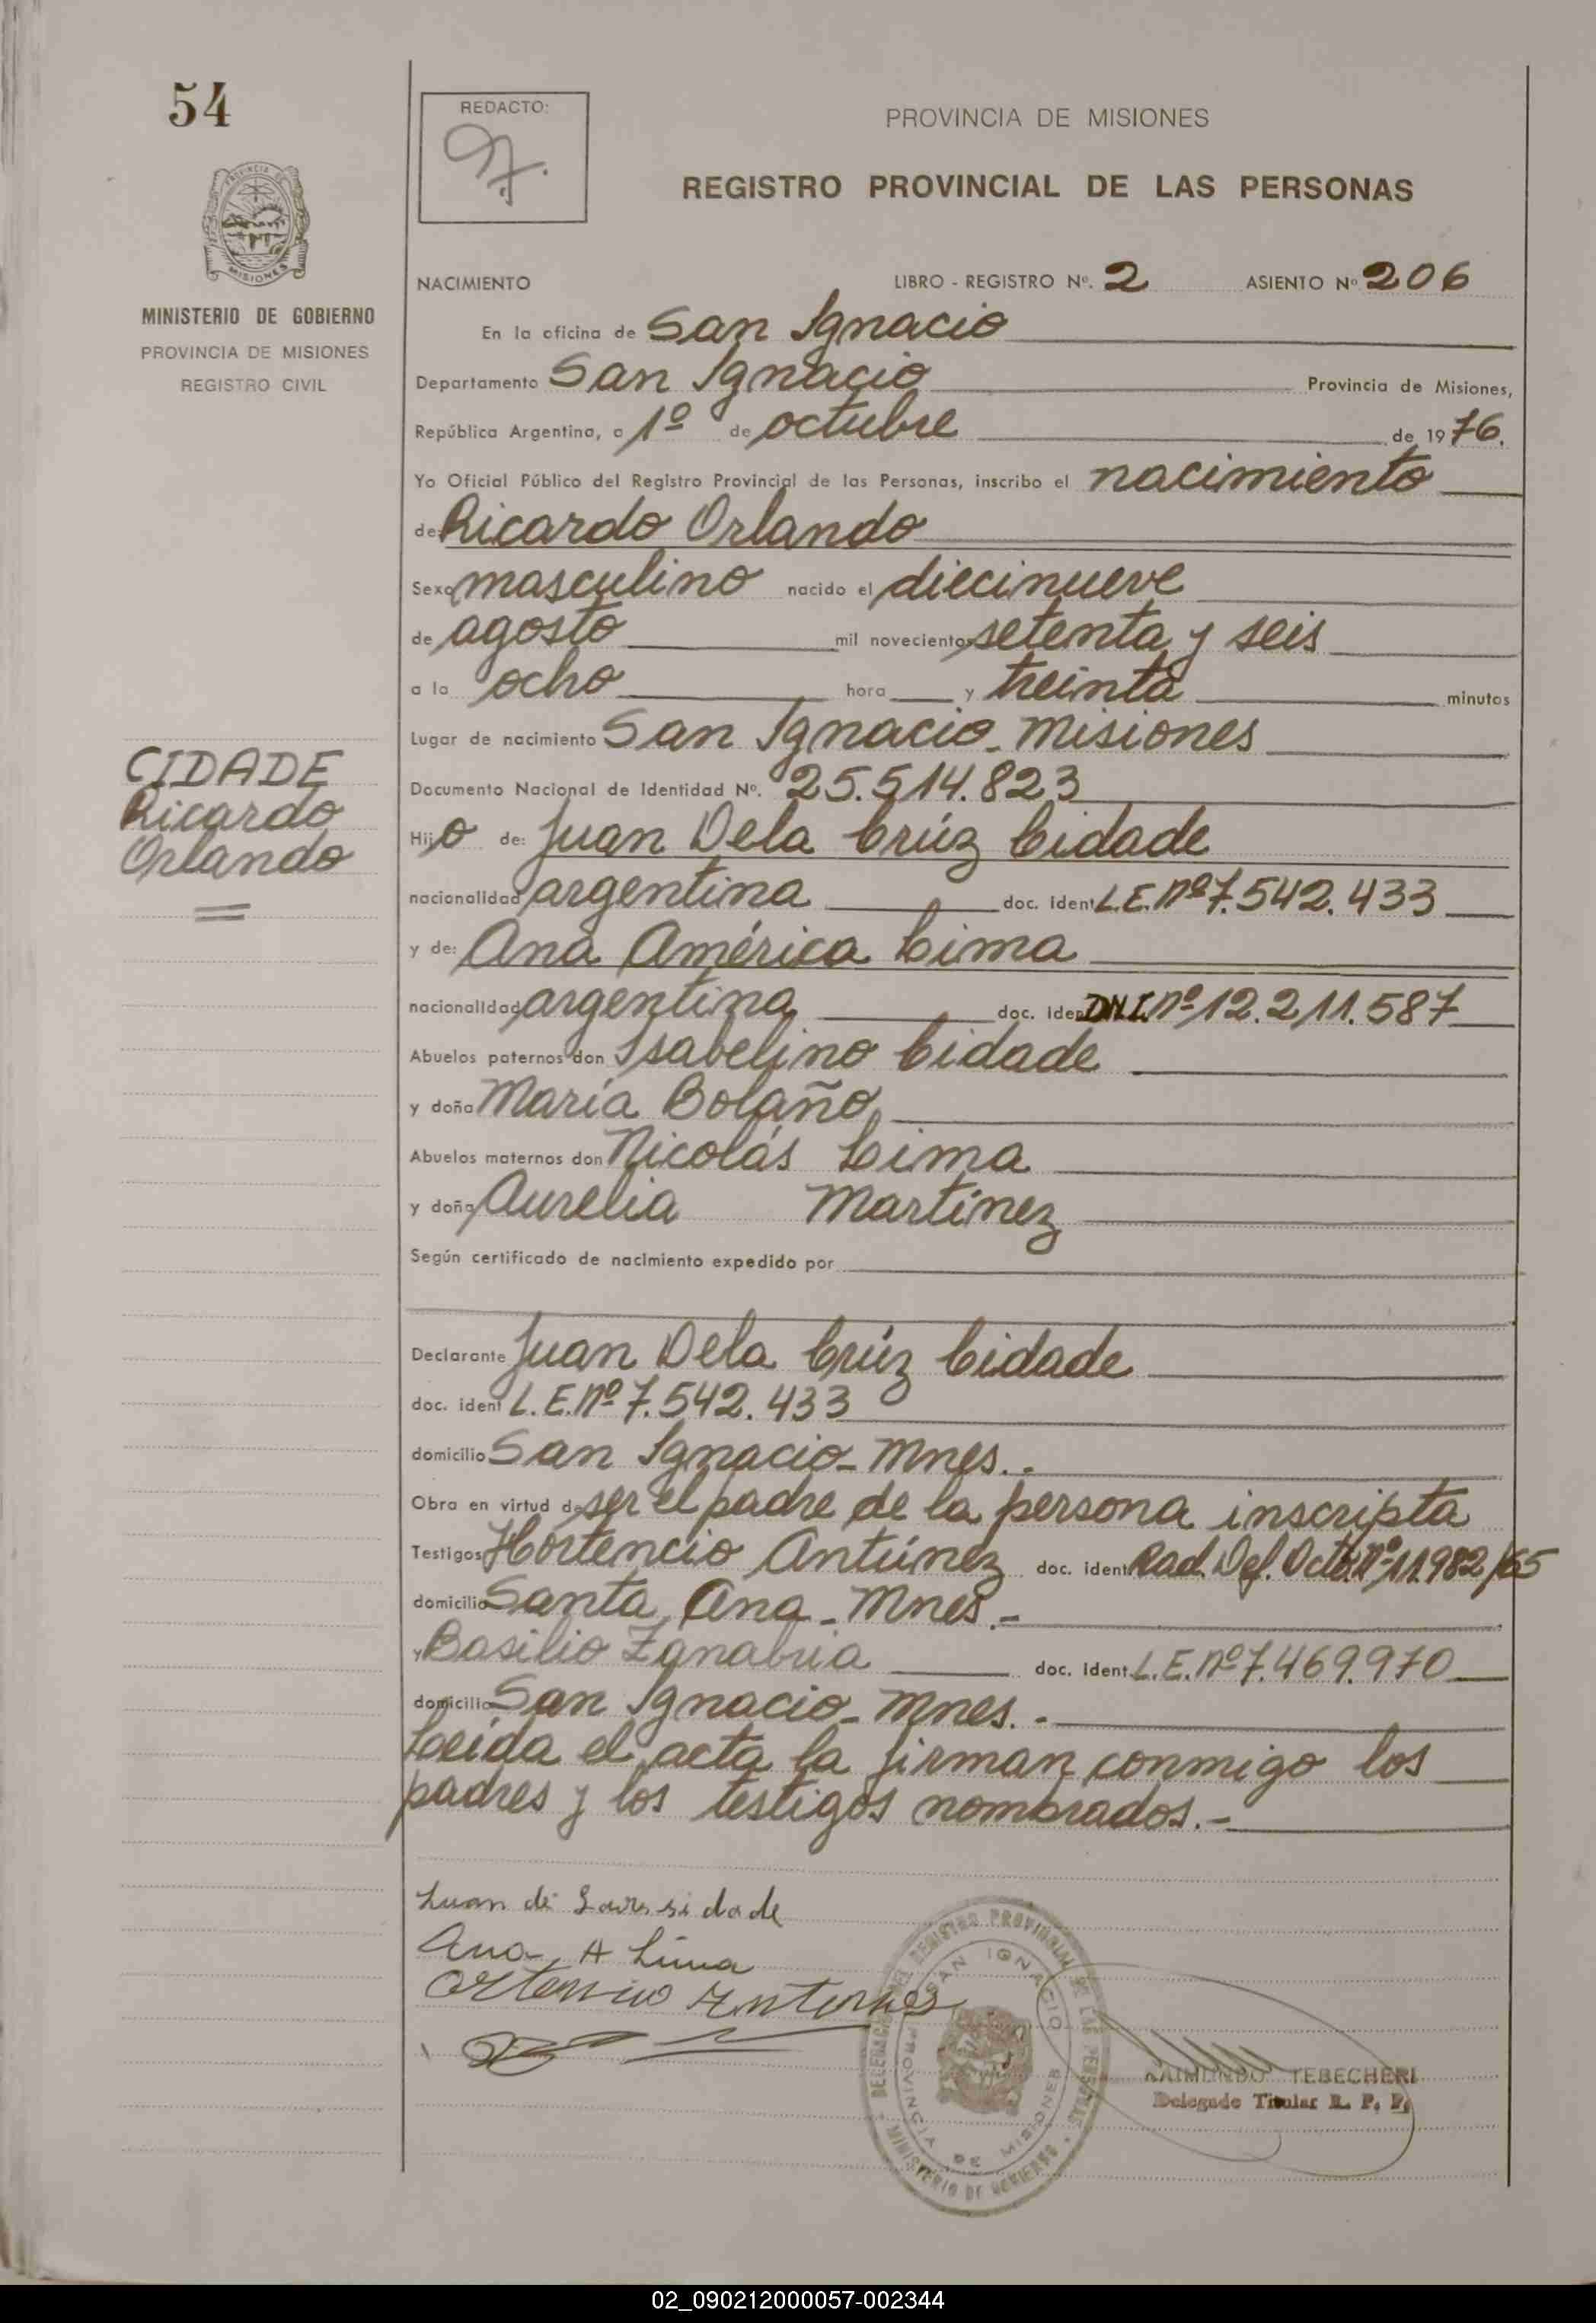 54
REDACTO:
PROVINCIA DE MISIONES
REGISTRO PROVINCIAL DE LAS PERSONAS
PROVINCIA DE
MISIONES
MINISTERIO DE GOBIERNO
PROVINCIA DE MISIONES
REGISTRO CIVIL
NACIMIENTO LIBRO - REGISTRO Nº. 2 ASIENTO Nº 206
En la oficina de San Ignacio
Departamento San Ignacio Provincia de Misiones,
República Argentina, a 1º de octubre de 1976.
Yo Oficial Público del Registro Provincial de las Personas, inscribo el nacimiento
de: Ricardo Orlando
Sexo masculino nacido el diecinueve
de agosto mil novecientos setenta y seis
a la ocho hora y treinta minutos
Lugar de nacimiento San Ignacio - Misiones
CIDADE
Ricardo
Orlando
Documento Nacional de Identidad Nº. 25.514.823
Hijo de: Juan Dela Crúz Cidade
nacionalidad argentina doc. ident L.E. Nº 7.542.433
y de: Ana América Lima
nacionalidad argentina doc. ident D.N.I. Nº 12.211.587
Abuelos paternos don Isabelino Cidade
y doña María Bolaño
Abuelos maternos don Nicolás Lima
y doña Aurelia Martínez
Según certificado de nacimiento expedido por
Declarante Juan Dela Crúz Cidade
doc. ident L.E. Nº 7.542.433
domicilio San Ignacio - Mnes. -
Obra en virtud de ser el padre de la persona inscripta
Testigos Hortencio Antúnez doc. ident. Rad. Def. Octo. Nº 11.982/65
domicilio Santa Ana - Mnes. -
y Basilio Zanabria doc. ident. L.E. Nº 7.469.970
domicilio San Ignacio - Mnes. -
Leída el acta la firman conmigo los
padres y los testigos nombrados. -
Juan de
Ana A Lima
DELEGACION DEL REGISTRO PROVINCIAL DE LAS PERSONAS
SAN IGNACIO
PROVINCIA DE MISIONES
MINISTERIO DE GOBIERNO
RAIMUNDO TEBECHERI
Delegado Titular R. P. P.
02_090212000057-002344